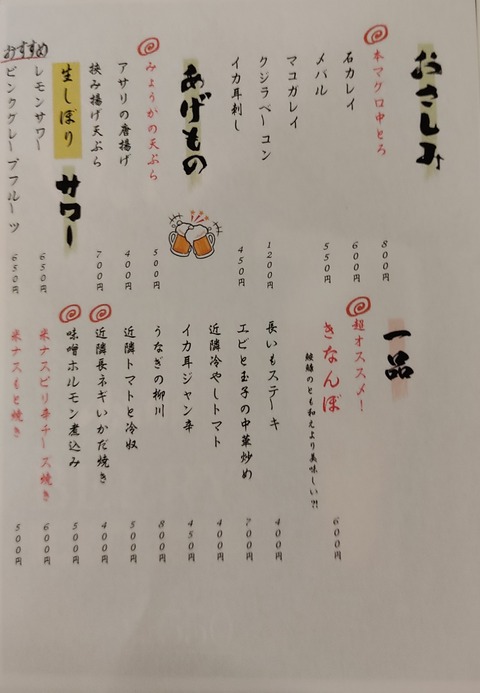 おさしみ
本マグロ中とろ 800円
石カレイ 600円
メバル 550円
マコガレイ
クジラベーコン 1200円
イカ耳刺し 450円
あげもの
みょうがの天ぷら 500円
アサリの唐揚げ 400円
挟み揚げ天ぷら 700円
生しぼり サワー
おすすめ
レモンサワー 650円
ピンクグレープフルーツ 650円
一品
超オススメ！
きなんぼ 600円
鮟鱇のとも和えより美味しい?!
長いもステーキ 400円
エビと玉子の中華炒め 700円
近隣冷やしトマト 400円
イカ耳ジャン辛 450円
うなぎの柳川 800円
近隣トマトと冷奴 500円
近隣長ネギいかだ焼き 400円
味噌ホルモン煮込み 500円
米ナスピリ辛チーズ焼き 600円
米ナスもと焼き 500円